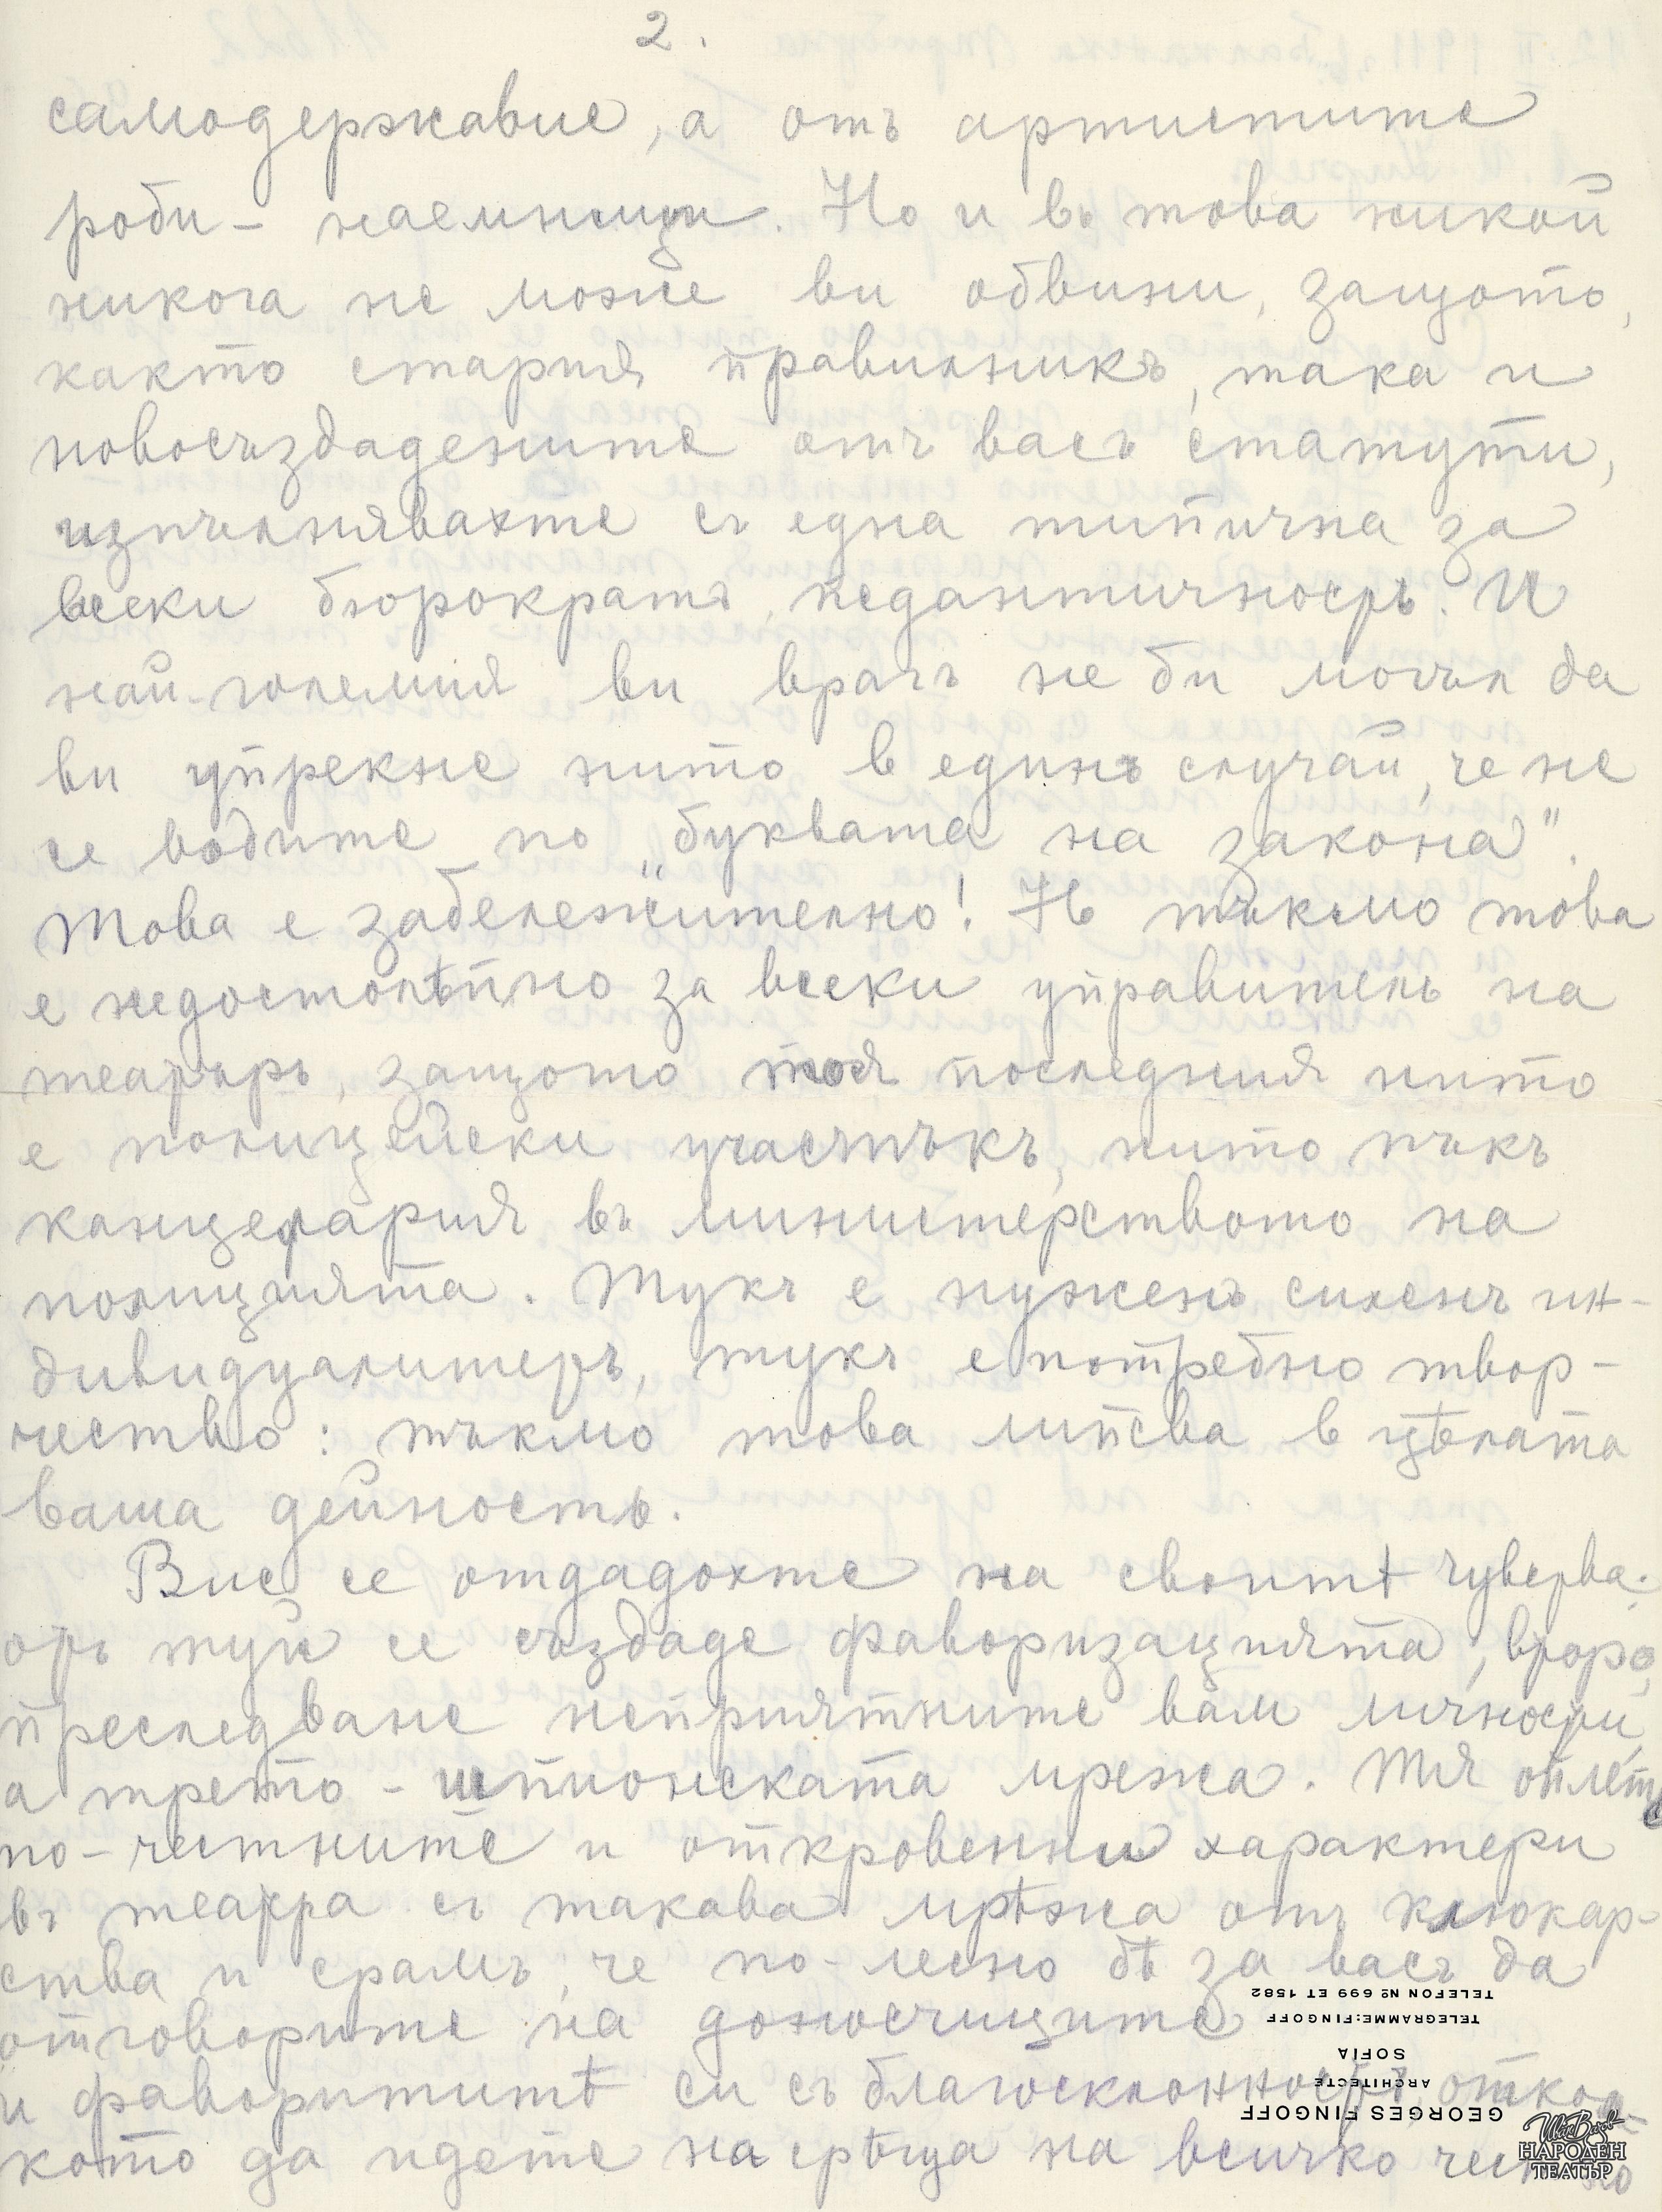 2.
самодержавие, а отъ артистите
роби - наемници. Но и въ това никой
никога не може ви обвини, защото,
както стария правилникъ, така и
новосъздадените отъ васъ статути,
изпълнявахте съ една типична за
всеки бюрократъ педантичность. И
най-големия ви врагъ не би могъл да
ви упрекне нито в единъ случай, че не
се водите по „буквата на закона".
Това е забележително! Но тъкмо това
е недостолѣпно за всеки управитель на
театъръ, защото тоя последния нито
е полицейски участъкъ, нито пъкъ
канцелария въ министерството на
полицията. Тукъ е нуженъ силенъ ин-
дивидуалитетъ, тукъ е потребно твор-
чество: тъкмо това липсва в цѣлата
ваша дейность.
Вие се отдадохте на своитѣ чувства.
отъ туй се създаде фаворизацията, второ,
преследване неприятните вам личности,
а трето - шпионската мрежа. Тя оплете
по-честните и откровенни характери
въ театра съ такава мрѣжа отъ клюкар-
ства и срамъ, че по-лесно бѣ за васъ да
отговорите на доносчиците
и фаворититѣ си съ благосклонность, откол-
кото да идете на срѣща на всичко честно
TELEFON № 699 ET 1582
TELEGRAMME: FINGOFF
SOFIA
ARCHITECTE
GEORGES FINGOFF
Иван Вазов
НАРОДЕН
ТЕАТЪР